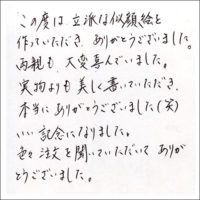 この度は、立派な似顔絵を
作っていただき、ありがとうございました。
両親も、大変喜んでいました。
実物よりも美しく書いていただき、
本当にありがとうございました(笑)
いい記念になりました。
色々注文を聞いていただいてありが
とうございました。